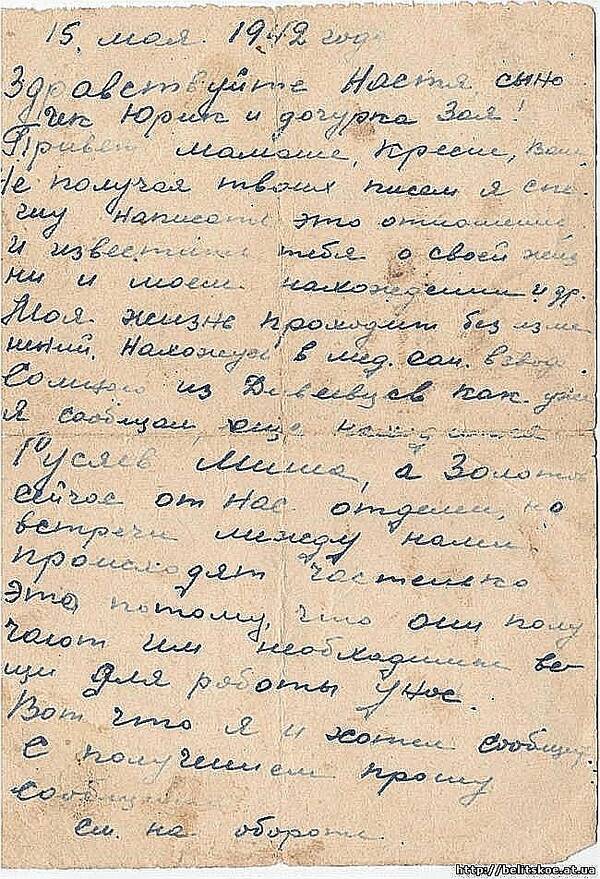 15. мая. 1942 года
Здравствуйте Настя, сыно
чек Юрик и дочурка Зая!
Привет мамаше, кресне, Ване,
Не получая твоих писам я спе
шу написать это отношение
и известить тебя о своей жиз
ни и моем нахождении и др.
Моя жизнь проходит без изме
нений. Нахожусь в мед. сан. взводе.
Со мною из Дивеевцев как уже
я сообщал, еще находится
Гусяев Миша, а Золотов
сейчас от нас отделен, но
встречи между нами
происходят частенько
это потому, что они полу
чают им необходимые ве
щи для работы у нас.
Вот что я и хотел сообщить.
С получением прошу
сообщить
см. на обороте.
http://belitskoe.at.ua